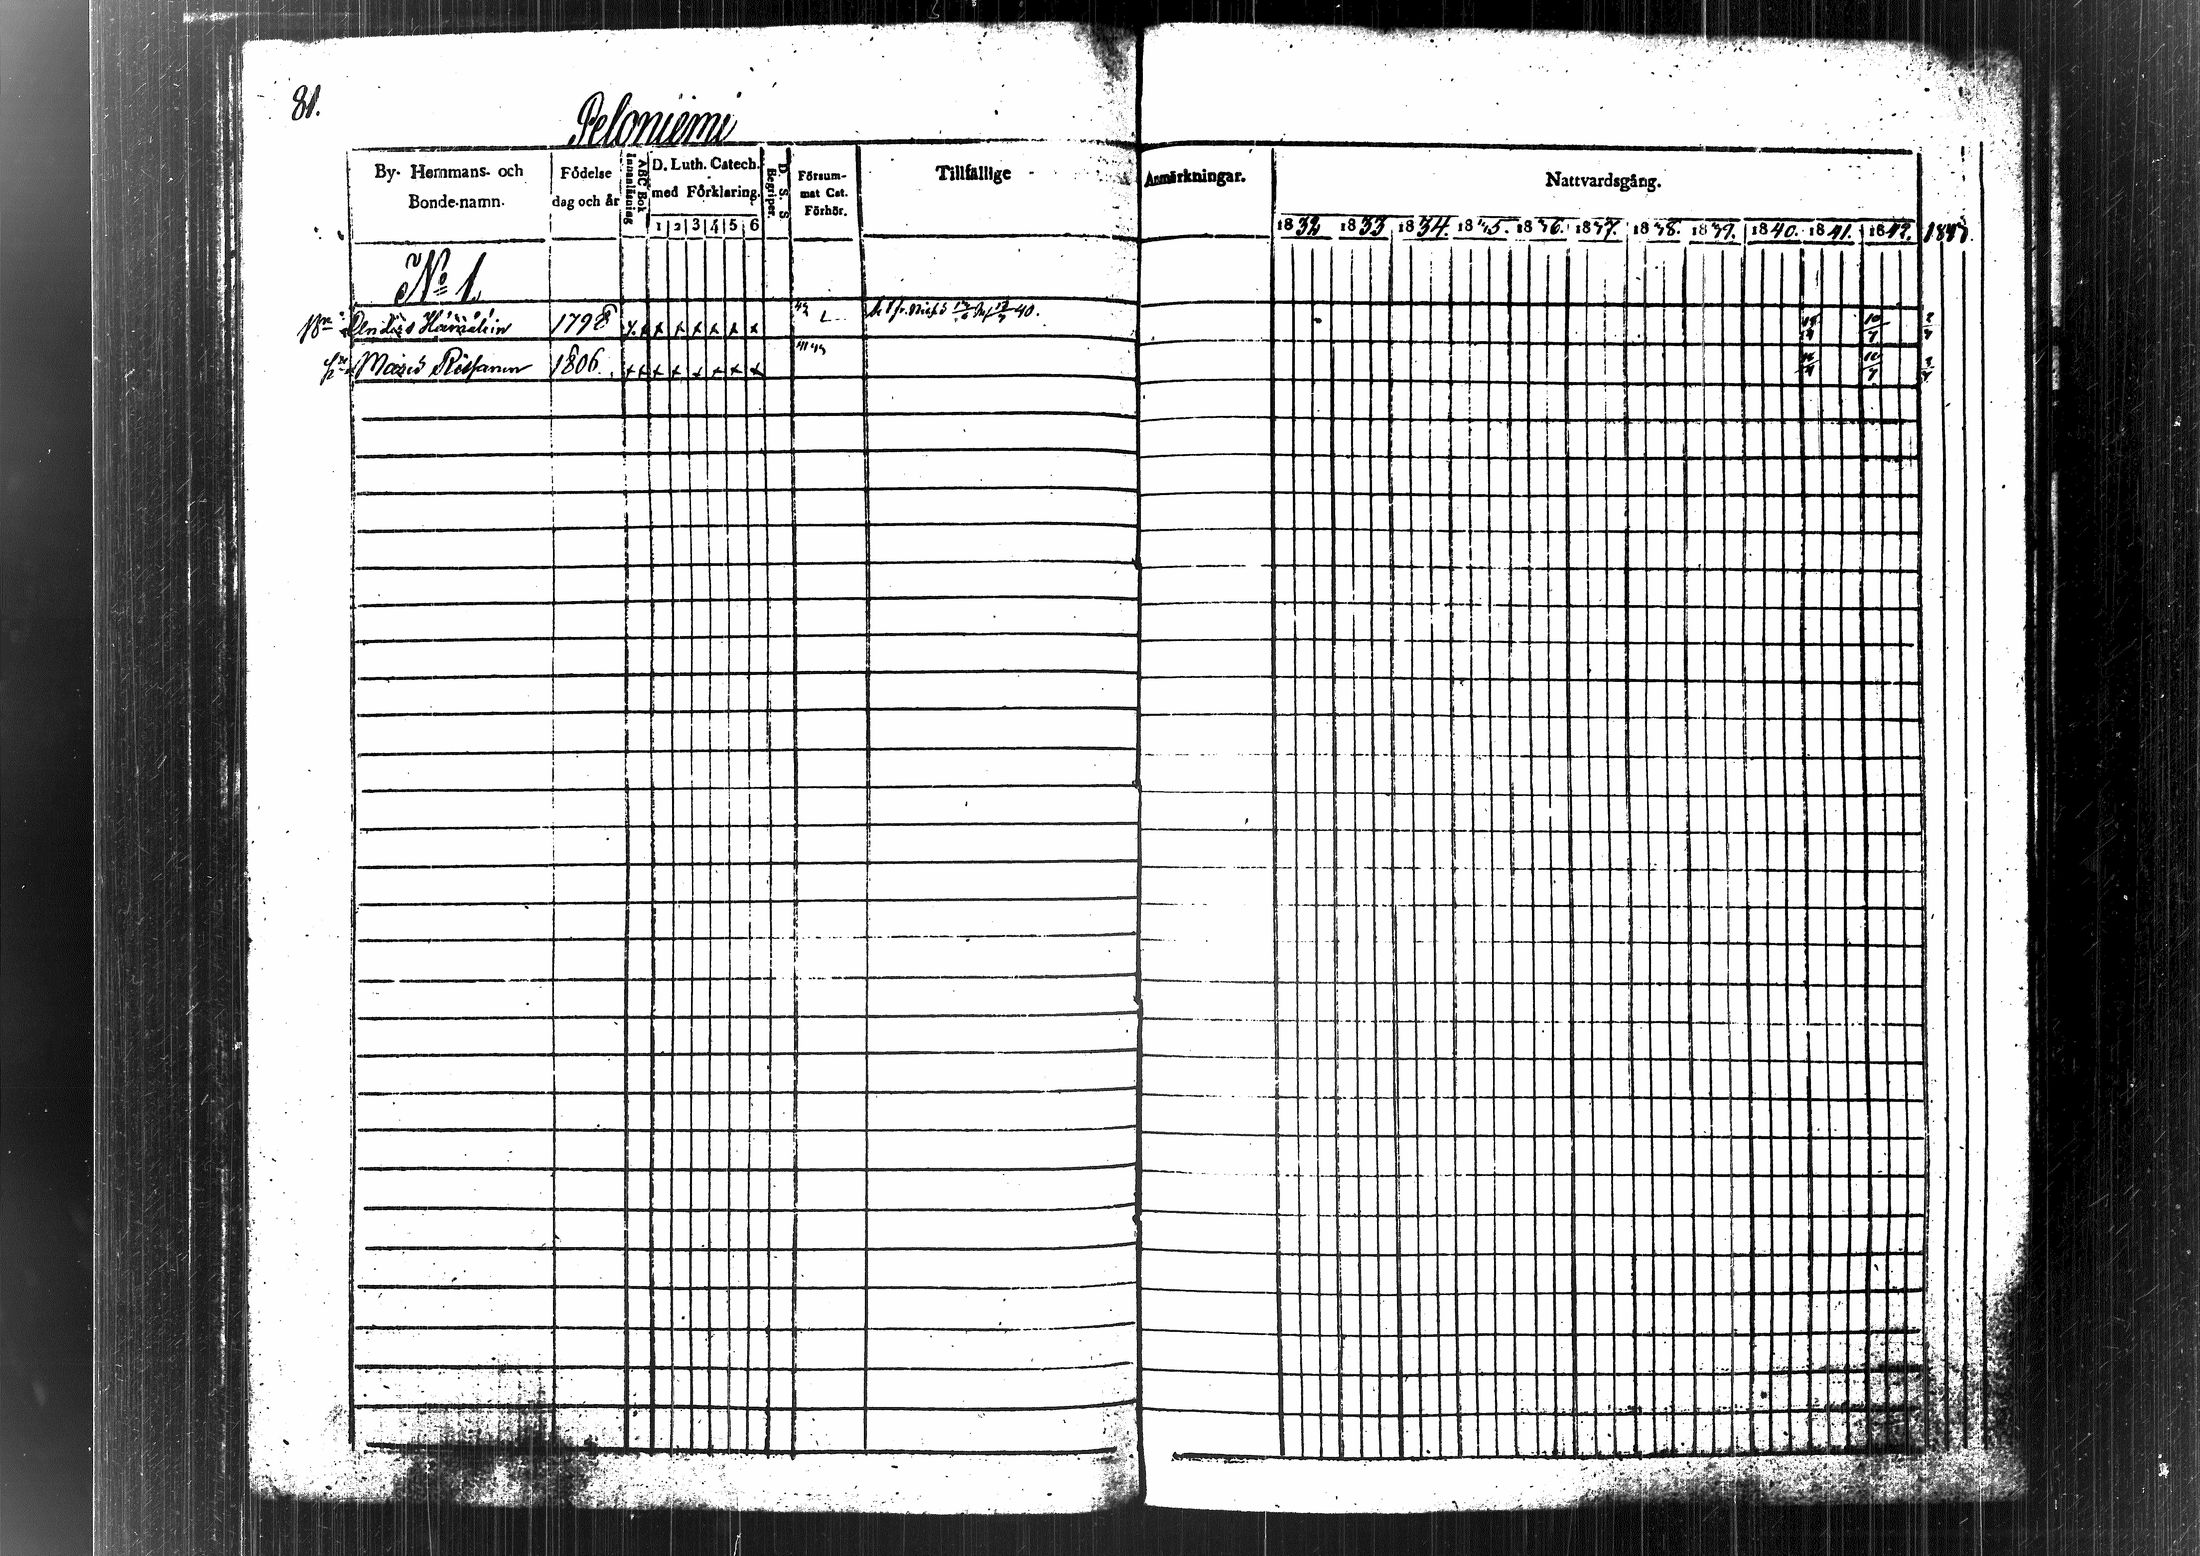 81.
Peloniemi
By- Hemmans- och Bonde-namn.
Födelse dag och år
ABC Bok Innanläsning
D. Luth. Catech. med Förklaring.
1 2 3 4 5 6
D. S. S Begriper.
Försum-mat Cat. Förhör.
Tillfällige Anmärkningar.
Nattvardsgång.
1832 1833 1834. 1835. 1836. 1837. 1838. 1839. 1840. 1841. 1842. 1843.
No 1
Anders 1798 x x x x x x x 40. 10/7 2/7
Maria 1806. x x x x x x x x 41 43 10/7